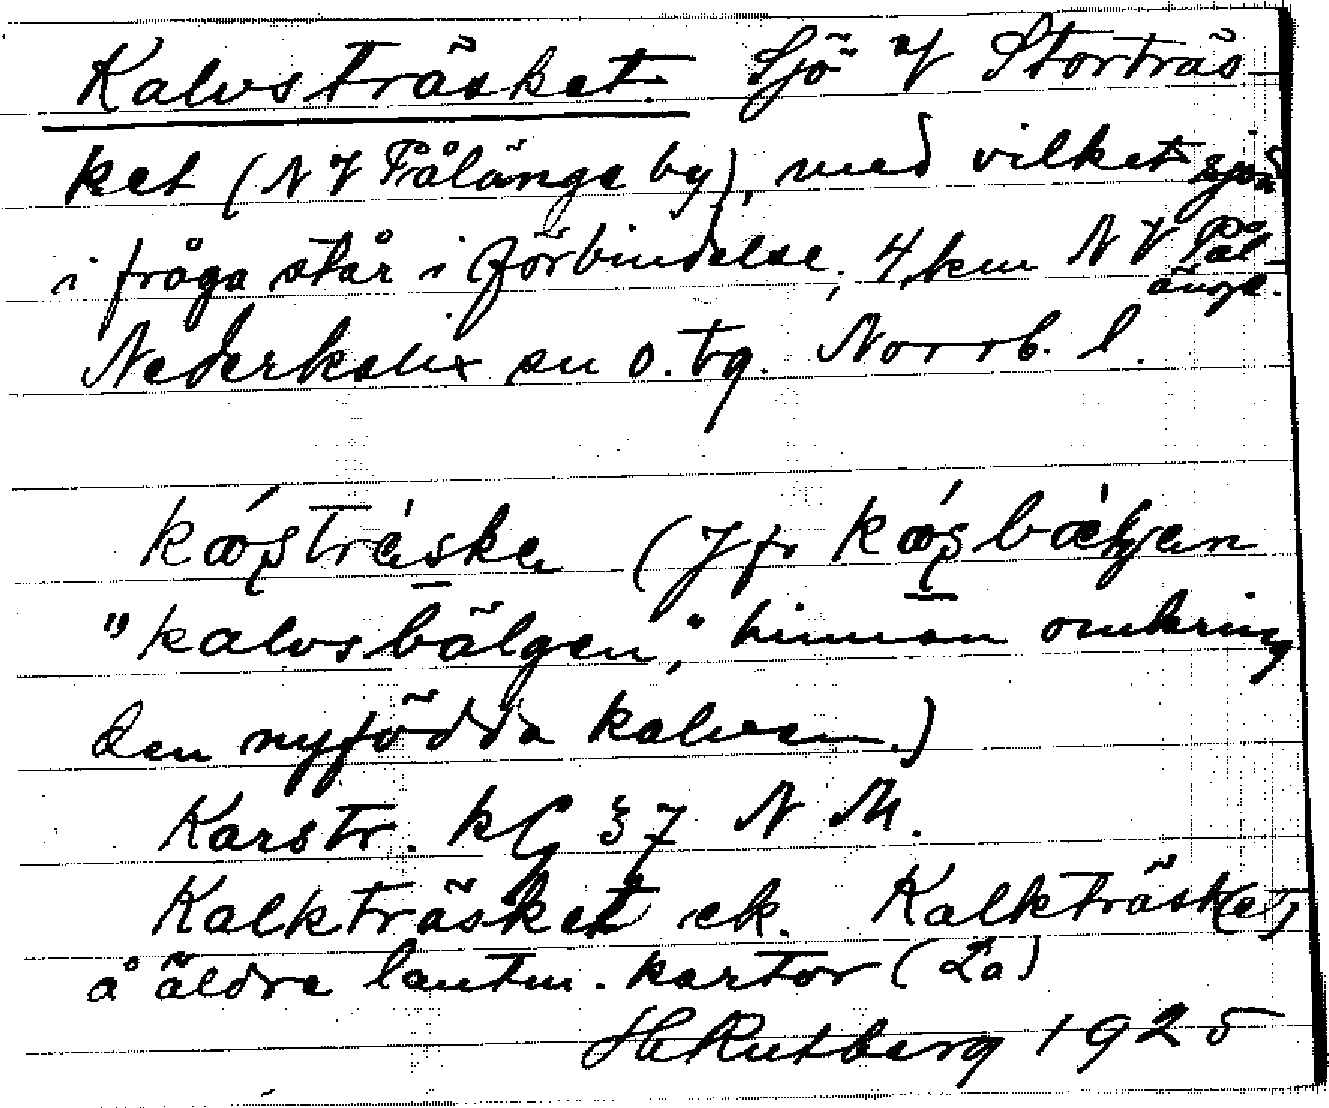 Kalvsträsket. Sjö V Storträs-
ket (NV Pålänge by), med vilket sjön
i fråga står i förbindelse, 4 km NV Pål-
änge.
Nederkalix sn o. tg. Norrb. l.
(Jfr
"kalvsbälgen," hinnan omkring
den nyfödda kalven.)
Karstr. kG 37 N M.
Kalkträsket ek. Kalkträsk(et)
å äldre lantm. kartor (La)
H Rutberg 1925